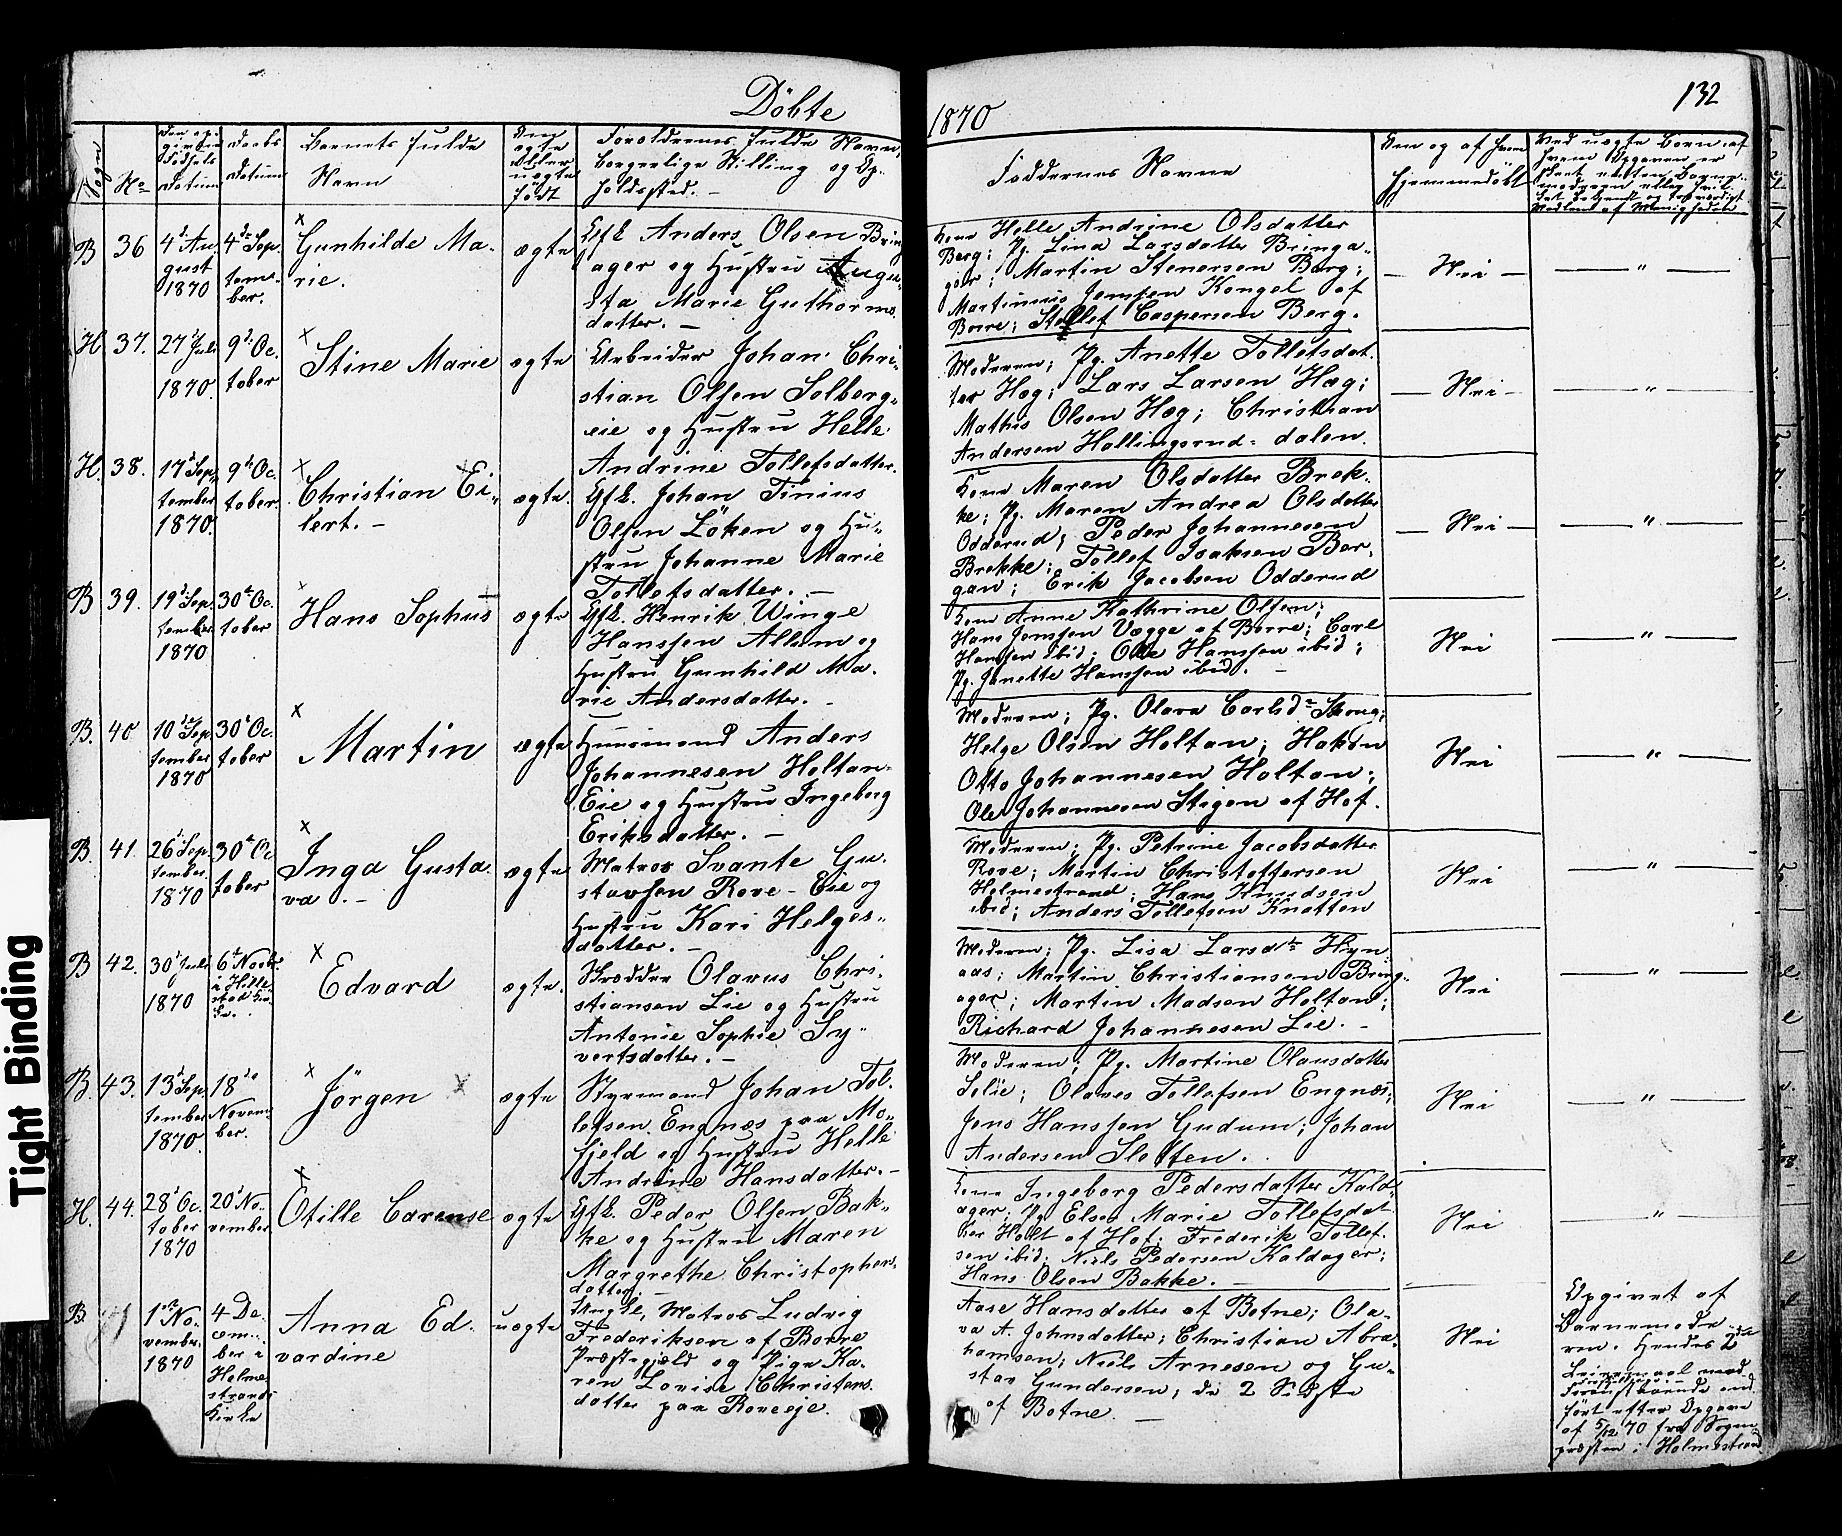 Döbte
1870
132
Sogn
No
Den opgivne Födsels Datum
Daabs Datum
Barnets fulde Navn
Om ægte eller uægte födt
Forældrenes fulde Navn, borgerlige Stilling og Opholdssted. —
Faddernes Navne
Om og af hvem hjemmedöbt
B 36 4de August 1870 4de September. Gunhilde Marie. ægte
Gfb. Anders Olsen Bringager og Hustru Augusta Marie Guthormsdatter. —
Kone Helle Andrine Olsdatter
Berg; Pg. Lina Larsdatter Bringa-
ger; Martin Stenersen Berg;
Martinius Jensen Kongel af
Borre; Stellef Caspersen Berg.
— Nei — — " —
H 37. 27de Juli 1870. 9de October Stine Marie ægte
Arbeider Johan Christian Olsen Solberg-
eie og Hustru Helle
Andrine Tollefsdatter.
Moderen; Pg. Anette Tollefsdat-
ter Høg; Lars Larsen Høg;
Mathis Olsen Høg; Christian
Andersen Hallingsrud-dalen.
— Nei — — " —
H. 38. 17de September 1870. 9de October Christian Eilert. — ægte.
Gfb. Johan Tinius
Olsen Löken og Hu-
stru Johanne Marie
Tollefsdatter. —
Kone Maren Olsdatter Brek-
ke; Pg. Maren Andrea Olsdatter
Odderud; Peder Johannesen
Brekke; Tollef Isaksen Ber-
gan; Erik Jacobsen Odderud
— Nei — — " —
B 39. 19de September 1870 30te October Hans Sophus ægte
Gfb. Henrik Winge
Hanssen Allum og
Hustru Gunhild Ma-
rie Andersdatter. —
Kone Anne Kathrine Olsen;
Hans Jenssen Vægge af Borre; Carl
Hanssen ibid; Ole Hanssen ibid;
Pg. Janette Hanssen ibid. —
Nei — " —
B. 40 10de September 1870 30te October Martin ægte
Huusmand Anders
Johannesen Holtan-
Eie og Hustru Ingeborg
Eriksdatter. —
Moderen; Pg. Olava Carlsdtr Skoug;
Helge Olsen Holtan; Hakon
Otto Johannesen Holtan;
Ole Johannesen Stigen af Hof.
Nei — " —
B. 41. 26de September 1870 30te October Inga Gustava. — ægte
Matros Svante Gu-
stavsen Rove-Eie og
Hustru Kari Helges-
datter. —
Moderen; Pg. Petrine Jacobsdatter
Rove; Martin Christoffersen
Holmestrand; Hans Knudsen
ibid; Anders Tollefsen Knatten
Nei — " —
B 42. 30te Juli 1870 6te Novbr. i Hillestad Kirke. Edvard ægte.
Skrædder Olavus Chri-
stiansen Lie og Hustru
Antonie Sophie Sy-
vertsdatter. —
Moderen; Pg. Lisa Larsdtr Hyn-
aas; Martin Christiansen Bring-
ager; Martin Madsen Holtan;
Richard Johannesen Lie. —
Nei — " —
B. 43. 13de September 1870. 18de November. Jörgen ægte
Styrmand Johan Tol-
lefsen Engnæs paa Mo-
fjeld og Hustru Helle
Andrine Hansdatter. —
Moderen; Pg. Martine Olausdatter
Solie; Olaves Tollefsen Engnæs;
Jens Hanssen Gudum; Johan
Andersen Slotten.
Nei — " —
H. 44. 28de October 1870 20de November. Otille Carense ægte
Gfb. Peder Olsen Bak-
ke og Hustru Maren
Margrethe Christophers-
datter. —
Kone Ingeborg Pedersdatter Kald-
ager; Pg. Else Marie Tollefsdat-
ter Holt af Hof; Frederik Tollef-
sen ibid; Niels Pedersen Kaldager;
Hans Olsen Bakke. —
Nei — " —
B. 1ste November 1870 4 December i Holmestrands Kirke Anna Edvardine uægte
Ungk. Matros Ludvig
Frederiksen af Borre
Præstegjæld og Pige Ka-
ren Lovise Christens-
datter paa Roveeje.
Aase Hansdatter af Botne; Ola-
va A. Johnsdatter; Christian Abra-
hamsen; Niels Arnesen og Gu-
stav Gundersen, de 2 Sidste
af Botne. —
Nei
Opgivet af
Barnemode-
ren. Hendes 2det
Leiermaal med
ført efter Opgave
af 5/12 70 fra Sogne-
præsten i Holmestrand
Tight Binding